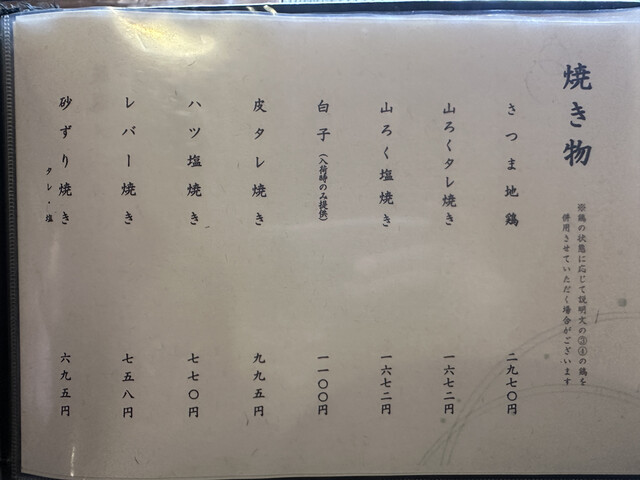 焼き物
※鶏の状態に応じて説明文の③④の鶏を
併用させていただく場合がございます
さつま地鶏
二九七〇円
山ろくタレ焼き
一六七二円
山ろく塩焼き
一六七二円
白子(入荷時のみ提供)
一一〇〇円
皮タレ焼き
九九五円
ハツ塩焼き
七七〇円
レバー焼き
七五八円
砂ずり焼き
タレ・塩
六九五円